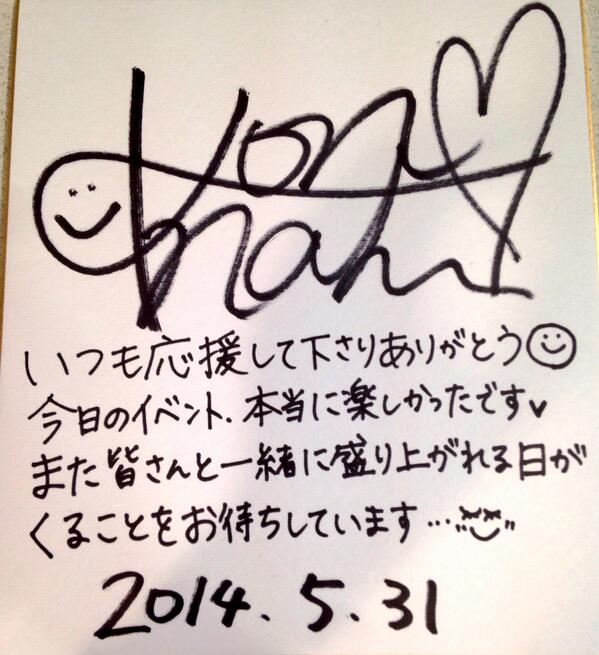 いつも応援して下さりありがとう
今日のイベント、本当に楽しかったです♥
また皆さんと一緒に盛り上がれる日が
くることをお待ちしています…
2014.5.31